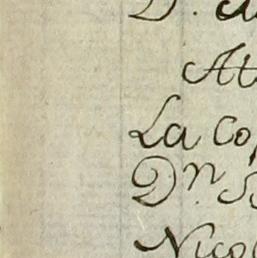 D.
At
La Co
Dn. B
Nicol